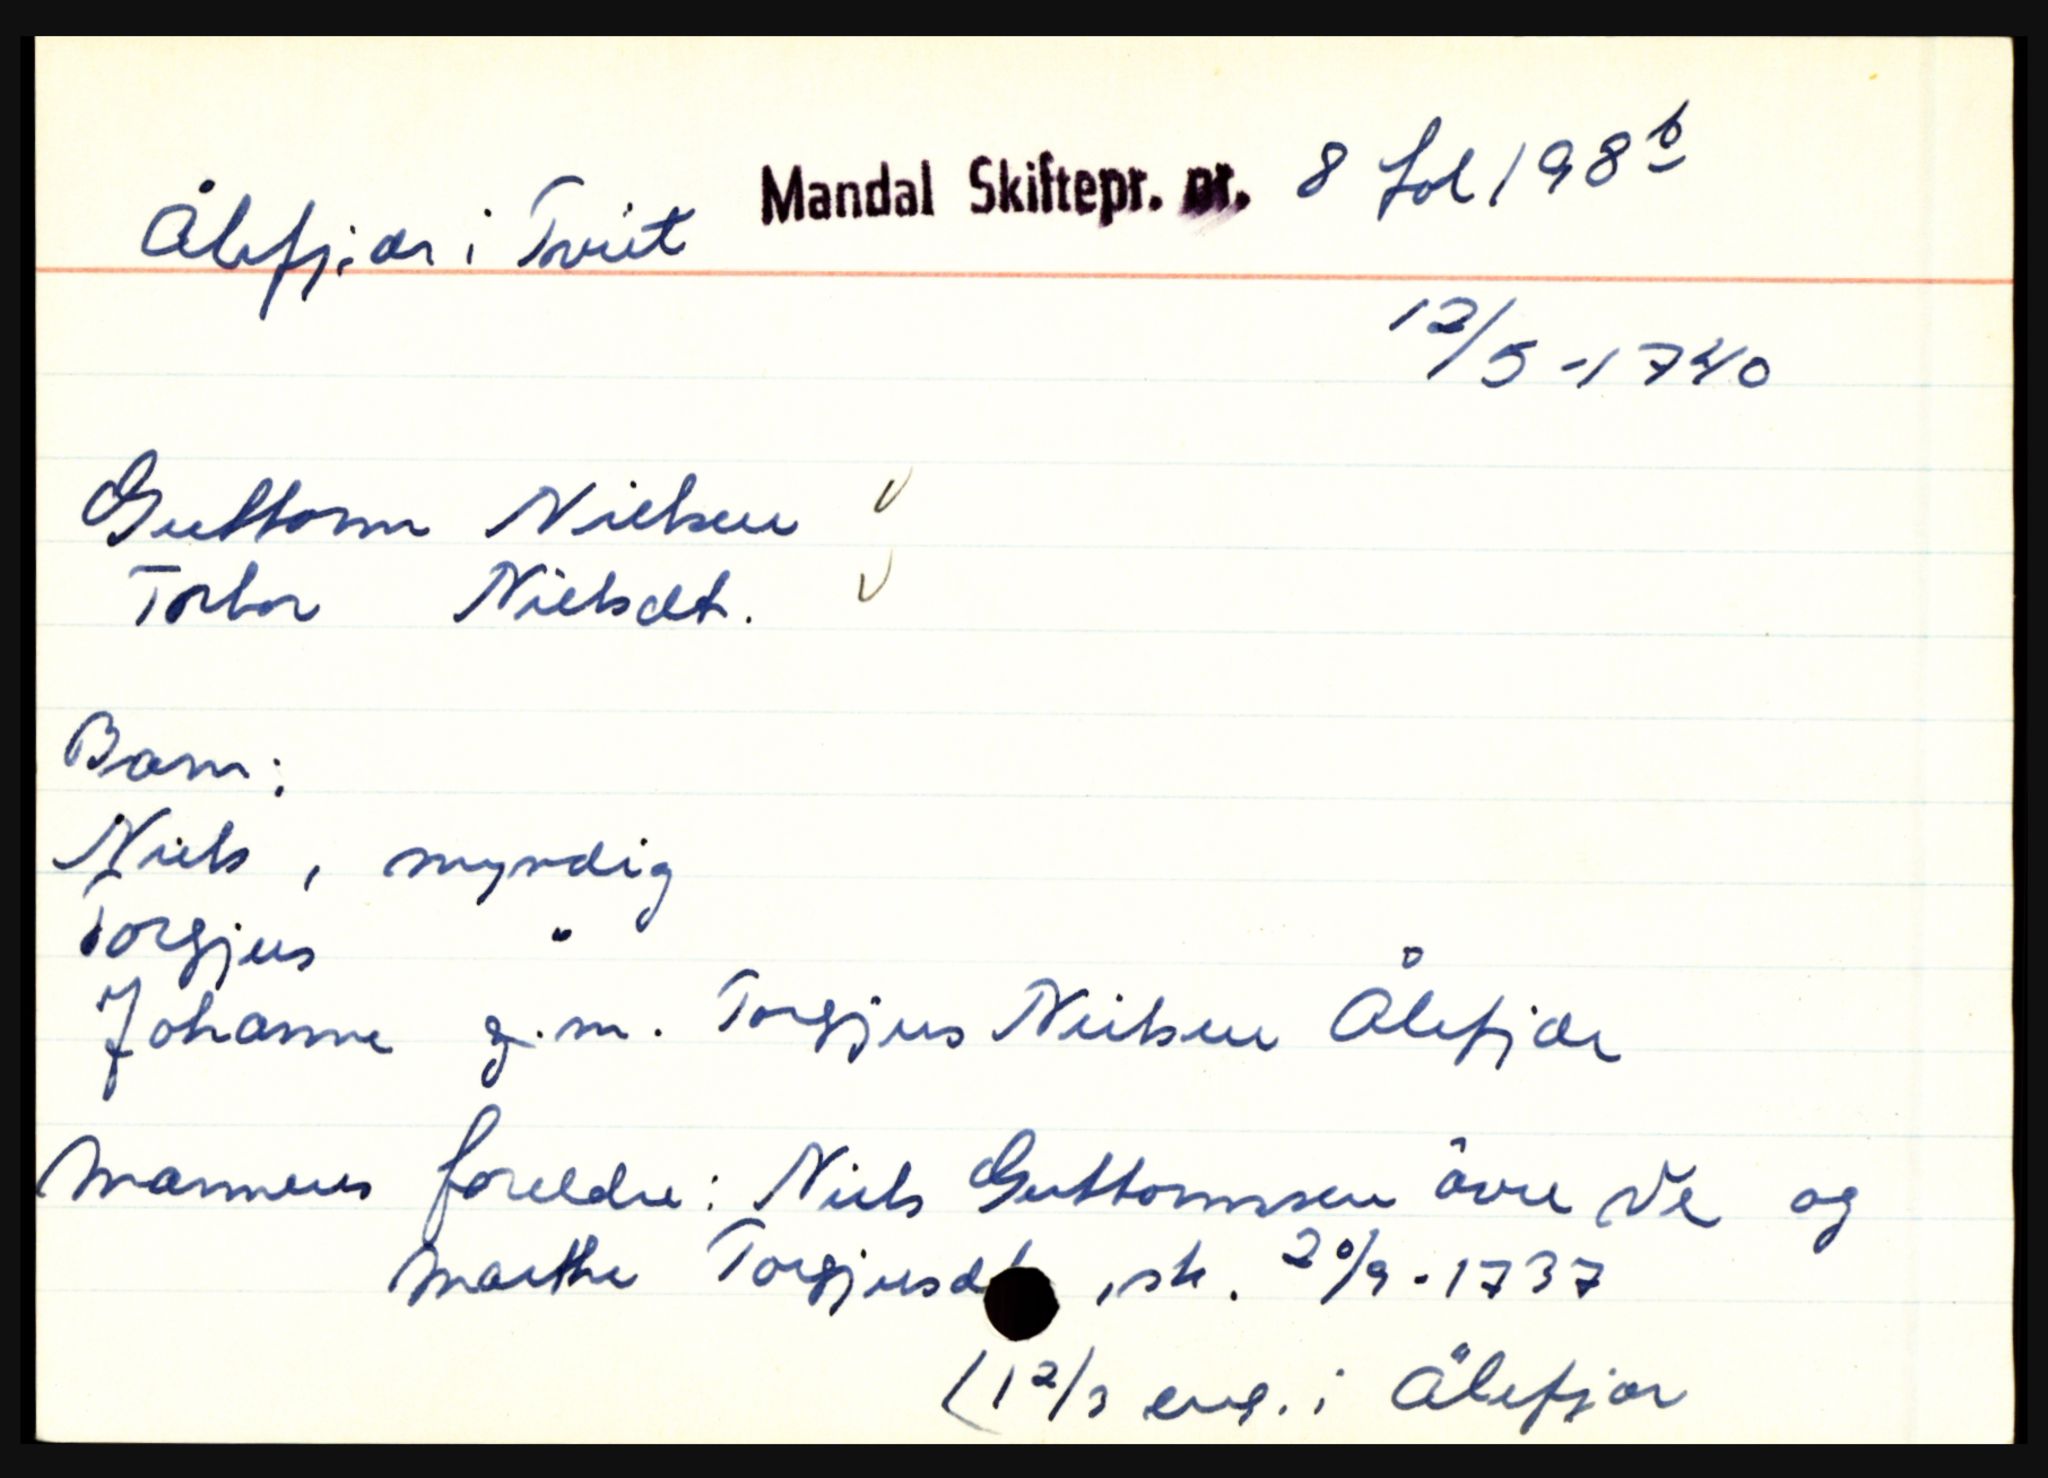 Mandal Skiftepr. nr. 8 fol 198 b
Ålefjær i Tveit
12/5-1740
Guttorm Nielsen
Torbor Nielsdt.
Barn:
Niels, myndig
Torgjus "
Johanne g.m. Torgjus Nielsen Ålefjær
Mannens foreldre: Niels Guttormsen övre Ve og
Marthe Torgjusdt, sk. 20/9-1737
(12/3 eng. i Ålefjær